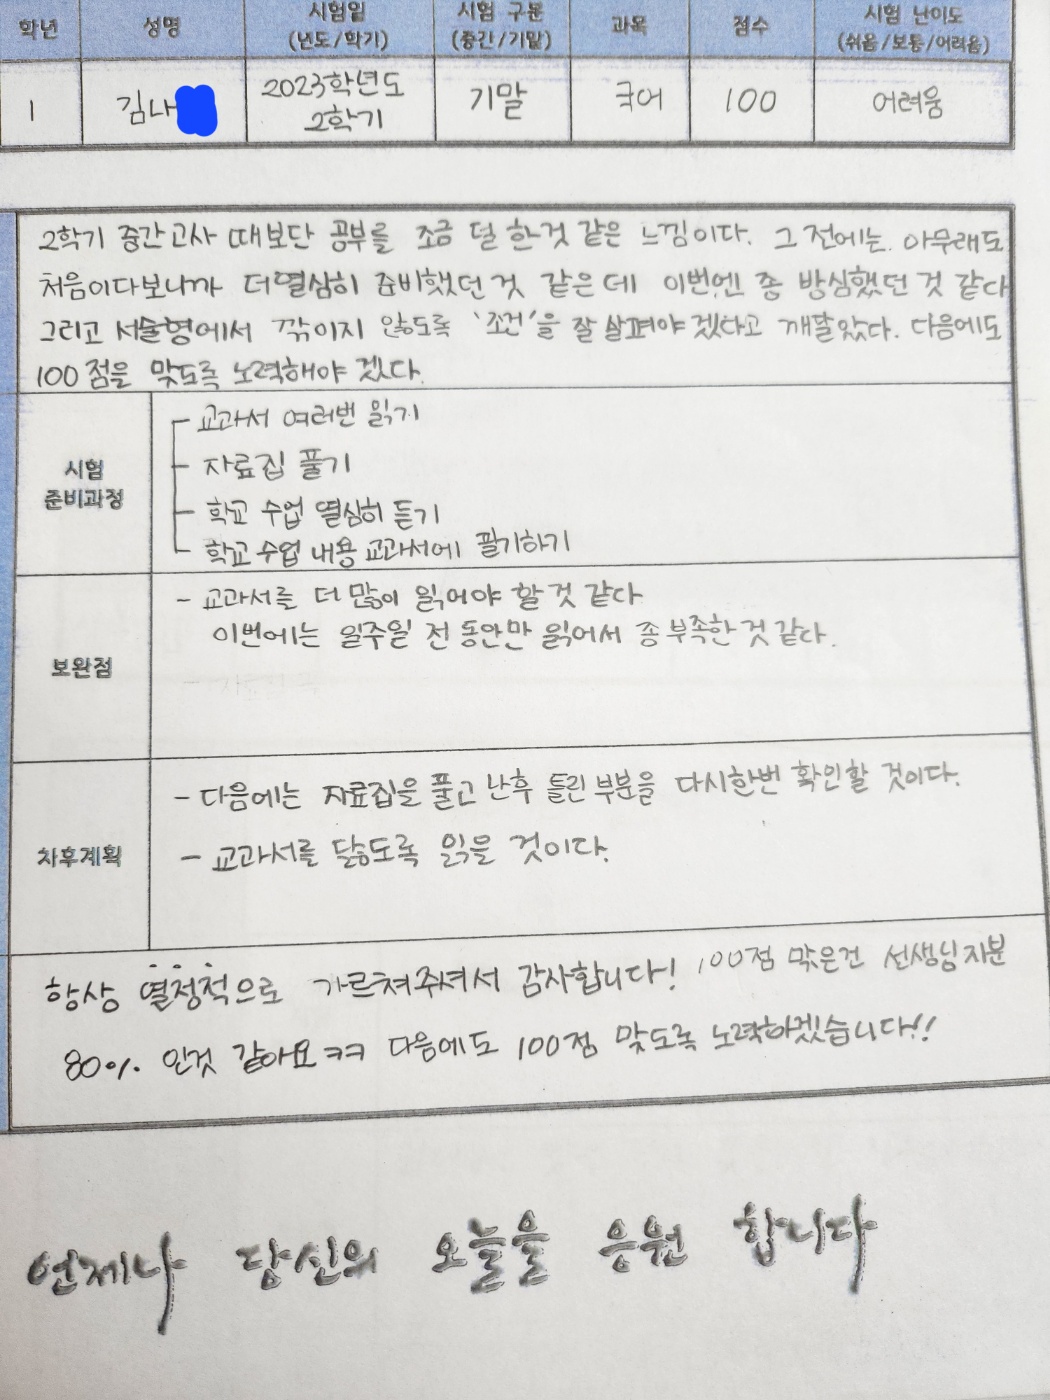 학년 성명 시험일 (년도/학기) 시험 구분 (중간/기말) 과목 점수 시험 난이도 (쉬움/보통/어려움)
1 김나 2023학년도 2학기 기말 국어 100 어려움
2학기 중간고사 때보단 공부를 조금 덜 한것 같은 느낌이다. 그 전에는 아무래도
처음이다보니까 더 열심히 준비했던 것 같은 데 이번엔 좀 방심했던 것 같다
그리고 서술형에서 깎이지 않도록 '조건'을 잘 살펴야 겠다고 깨달았다. 다음에도
100점을 맞도록 노력해야 겠다.
시험 준비과정
교과서 여러번 읽기
자료집 풀기
학교 수업 열심히 듣기
학교 수업 내용 교과서에 필기하기
보완점
- 교과서를 더 많이 읽어야 할 것 같다
이번에는 일주일 전 동안만 읽어서 좀 부족한 것 같다.
차후계획
- 다음에는 자료집을 풀고 난후 틀린 부분을 다시한번 확인할 것이다.
- 교과서를 닳도록 읽을 것이다.
항상 열정적으로 가르쳐주셔서 감사합니다! 100점 맞은건 선생님지분
80% 인것 같아요ㅋㅋ 다음에도 100점 맞도록 노력하겠습니다!!
언제나 당신의 오늘을 응원 합니다